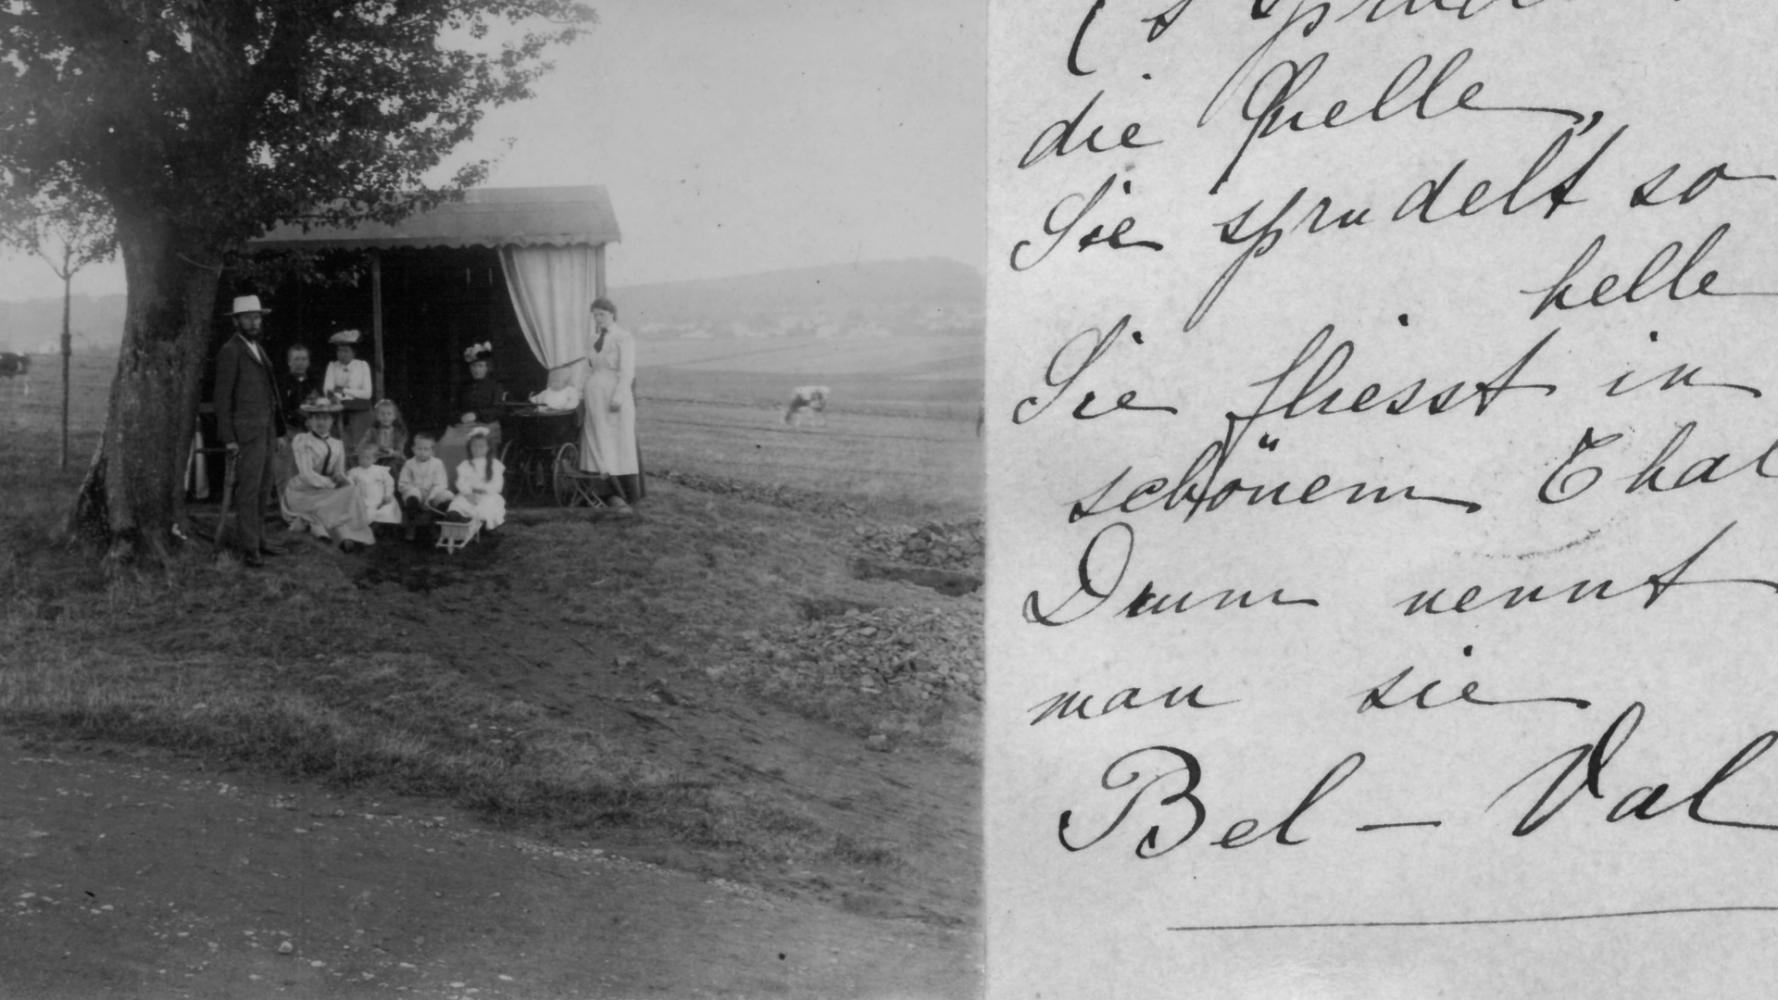 Es sprudelt
die Quelle,
Sie sprudelt so
helle
Sie fliesst in
schönem Thal
Drum nennt
man sie
Bel – Val